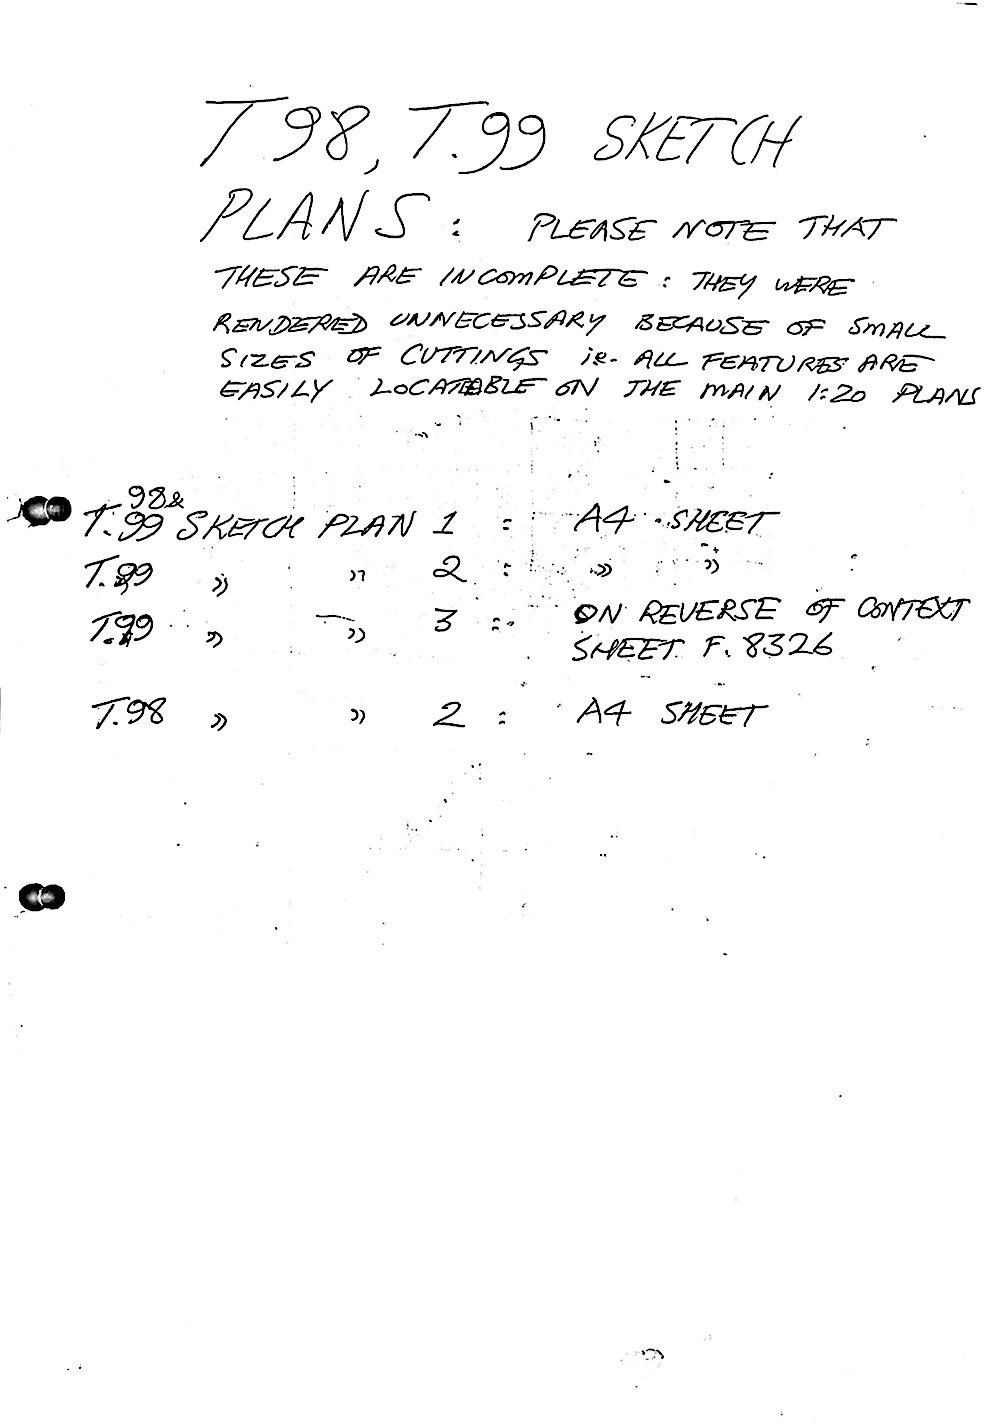 T98, T.99 SKETCH
PLANS : PLEASE NOTE THAT
THESE ARE INCOMPLETE : THEY WERE
RENDERED UNNECESSARY BECAUSE OF SMALL
SIZES OF CUTTINGS ie. ALL FEATURES ARE
EASILY LOCATABLE ON THE MAIN 1:20 PLANS
98&
T.99 SKETCH PLAN 1 : A4 SHEET
T.99 " " 2 : " "
T.99 " " 3 : ON REVERSE OF CONTEXT
SHEET F. 8326
T.98 " " 2 : A4 SHEET